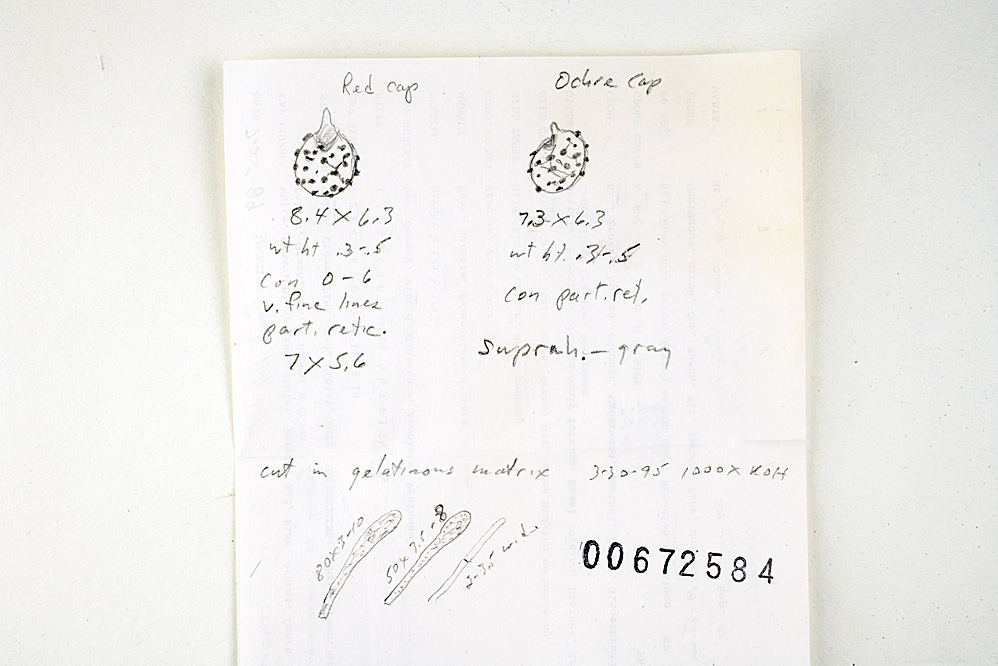 Red cap
8.4 X 6.3
wt ht .3-.5
Con 0-6
v. fine lines
part. retic.
7 X 5.6
Ochre Cap
7.3 X 6.3
wt ht. .3-.5
Con part. ret.
Suprah. - gray
cut in gelatinous matrix 3-30-95 1000X KOH
80X3-10
50X3.5-8
2-3.5 wide
00672584